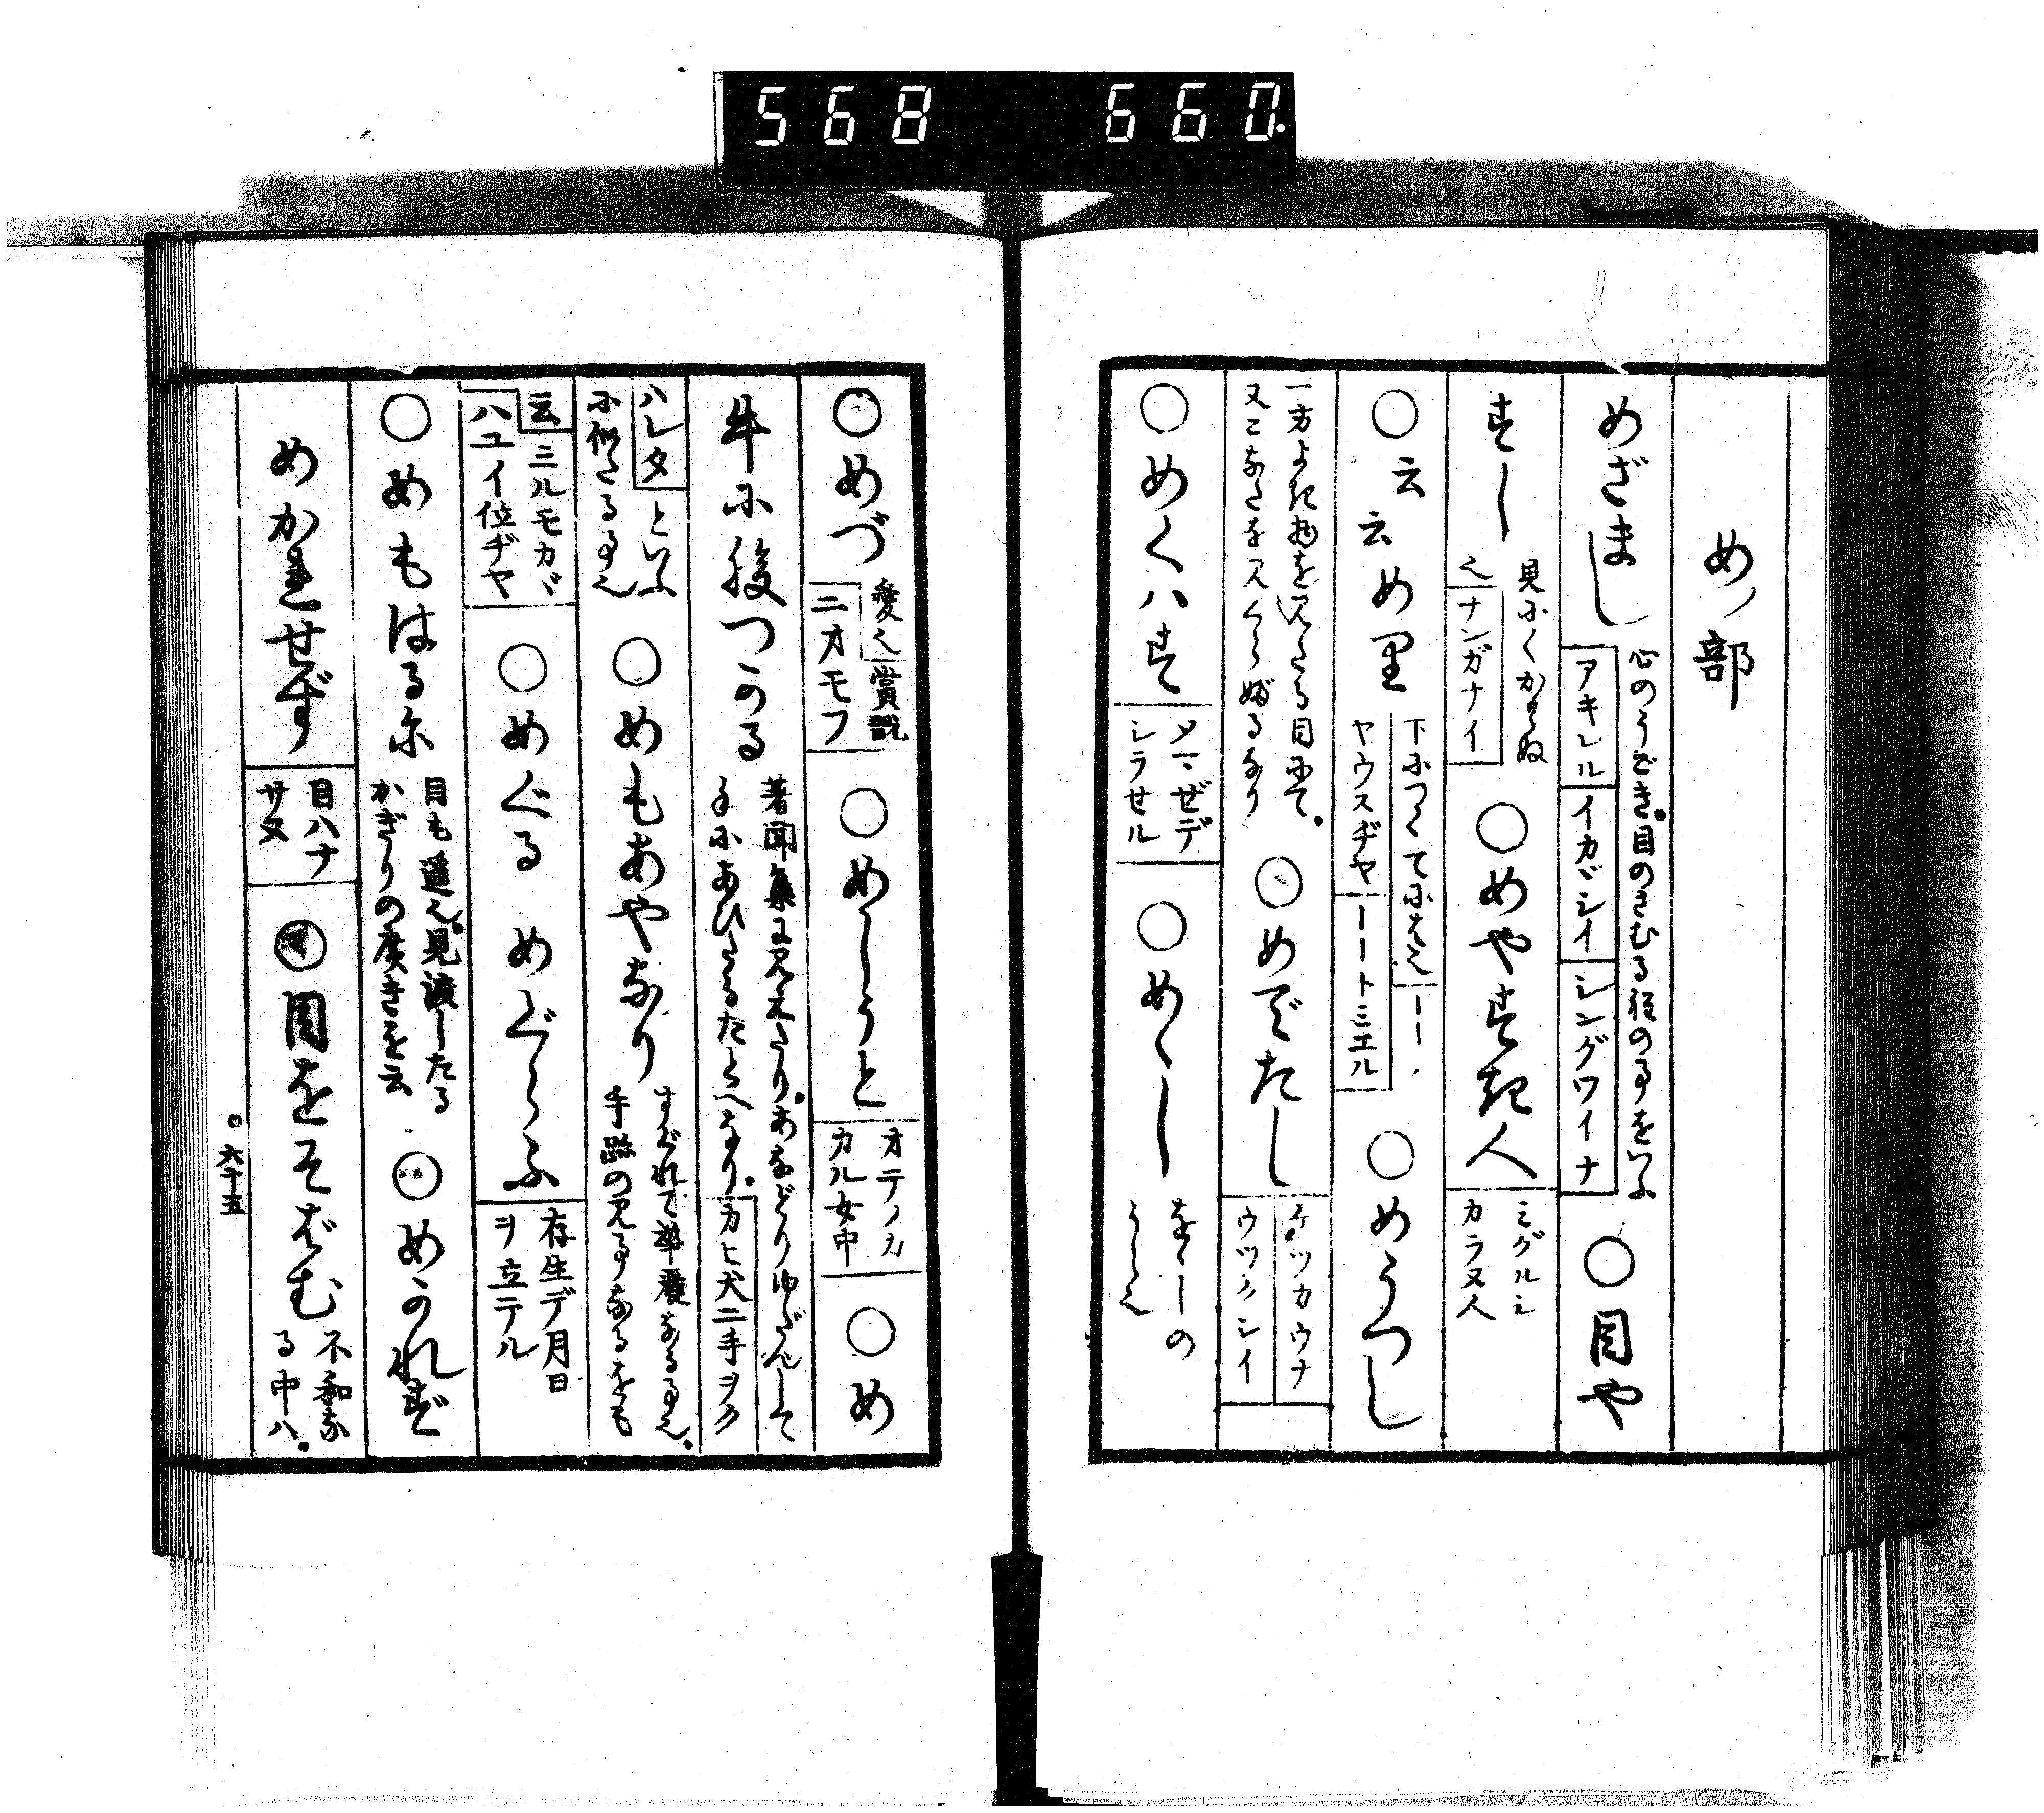 568 660
めノ部
めざまし 心のうごき。目のさむる程の事をいふ アキレル イカヾシイ シングワイナ ○目や
すし 見にくからぬ也 ナンガナイ ○めやすき人 ミグルシカラヌ人
○云云めり 下につくてにをは也 ーー ヤウスヂヤ ーートミエル ○めうつし
一方よき物を見たる目にて。又こなたを見くらぶるなり ○めでたし ケツカウナ ウツクシイ
○めくハす メマゼデシラセル ○めゝし をゝしのうら也
○めづ 愛也 賞翫ニオモフ ○めしうと オテノカカル女中 ○め
牛に腹つかる 著聞集に見えたり。あなどりゆだんして手にあひたるたとへなり。 カヒ犬ニ手ヲク
ハレタ といふに似たる事也 ○めもあやなり すぐれて華麗なる事也。手跡の見事なるをも
云 ミルモカヾハユイ位ヂヤ ○めぐる めぐらふ 存生デ月日ヲ立テル
○めもはるに 目も遥也。見渡したるかぎりの広きを云 ○めかれず
めかれせず 目ハナサヌ ○目をそばむ 不和なる中ハ。
六十五